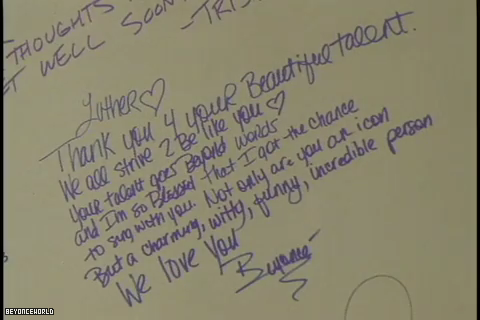 THOUGHTS
ET WELL SOON
-TRIS
Luther♡
Thank you 4 your Beautiful talent.
We all strive 2 Be like you ♡
your talent goes Beyond words
and I'm so Blessed that I got the chance
to sing with you. Not only are you an icon
But a charming, witty, funny, incredible person
We love you
Beyonce
BEYONCEWORLD